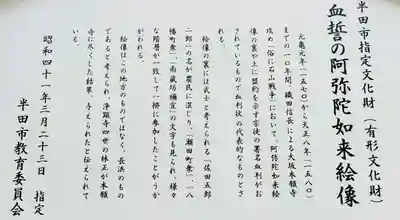 半田市指定文化財(有形文化財)
血誓の阿弥陀如来絵像
元亀元年(一五七〇)から天正八年(一五八〇)
までの一〇年間、織田信長による大坂本願寺
攻め「俗に石山戦争」において、阿弥陀如来絵
像の裏の土に盟約を示す宗徒の署名血判がお
されているもので血判状の代表的なものとさ
れている。
絵像の裏には武士と考えられる「佐田五郎
二郎」の名が農民に混じり、「瀬田町衆」、「八
幡町衆」、「南蔵坊禰宜」の文字も見られ、様々
な階層が一致して一揆に参加したことがうか
がわれる。
絵像はこの地方のものではなく、長浜のもの
であると考えられ、浄顕寺四世の林正が本願
寺に尽くした結果、与えられたと伝えられて
いる。
昭和四十一年三月二十三日 指定
半田市教育委員会